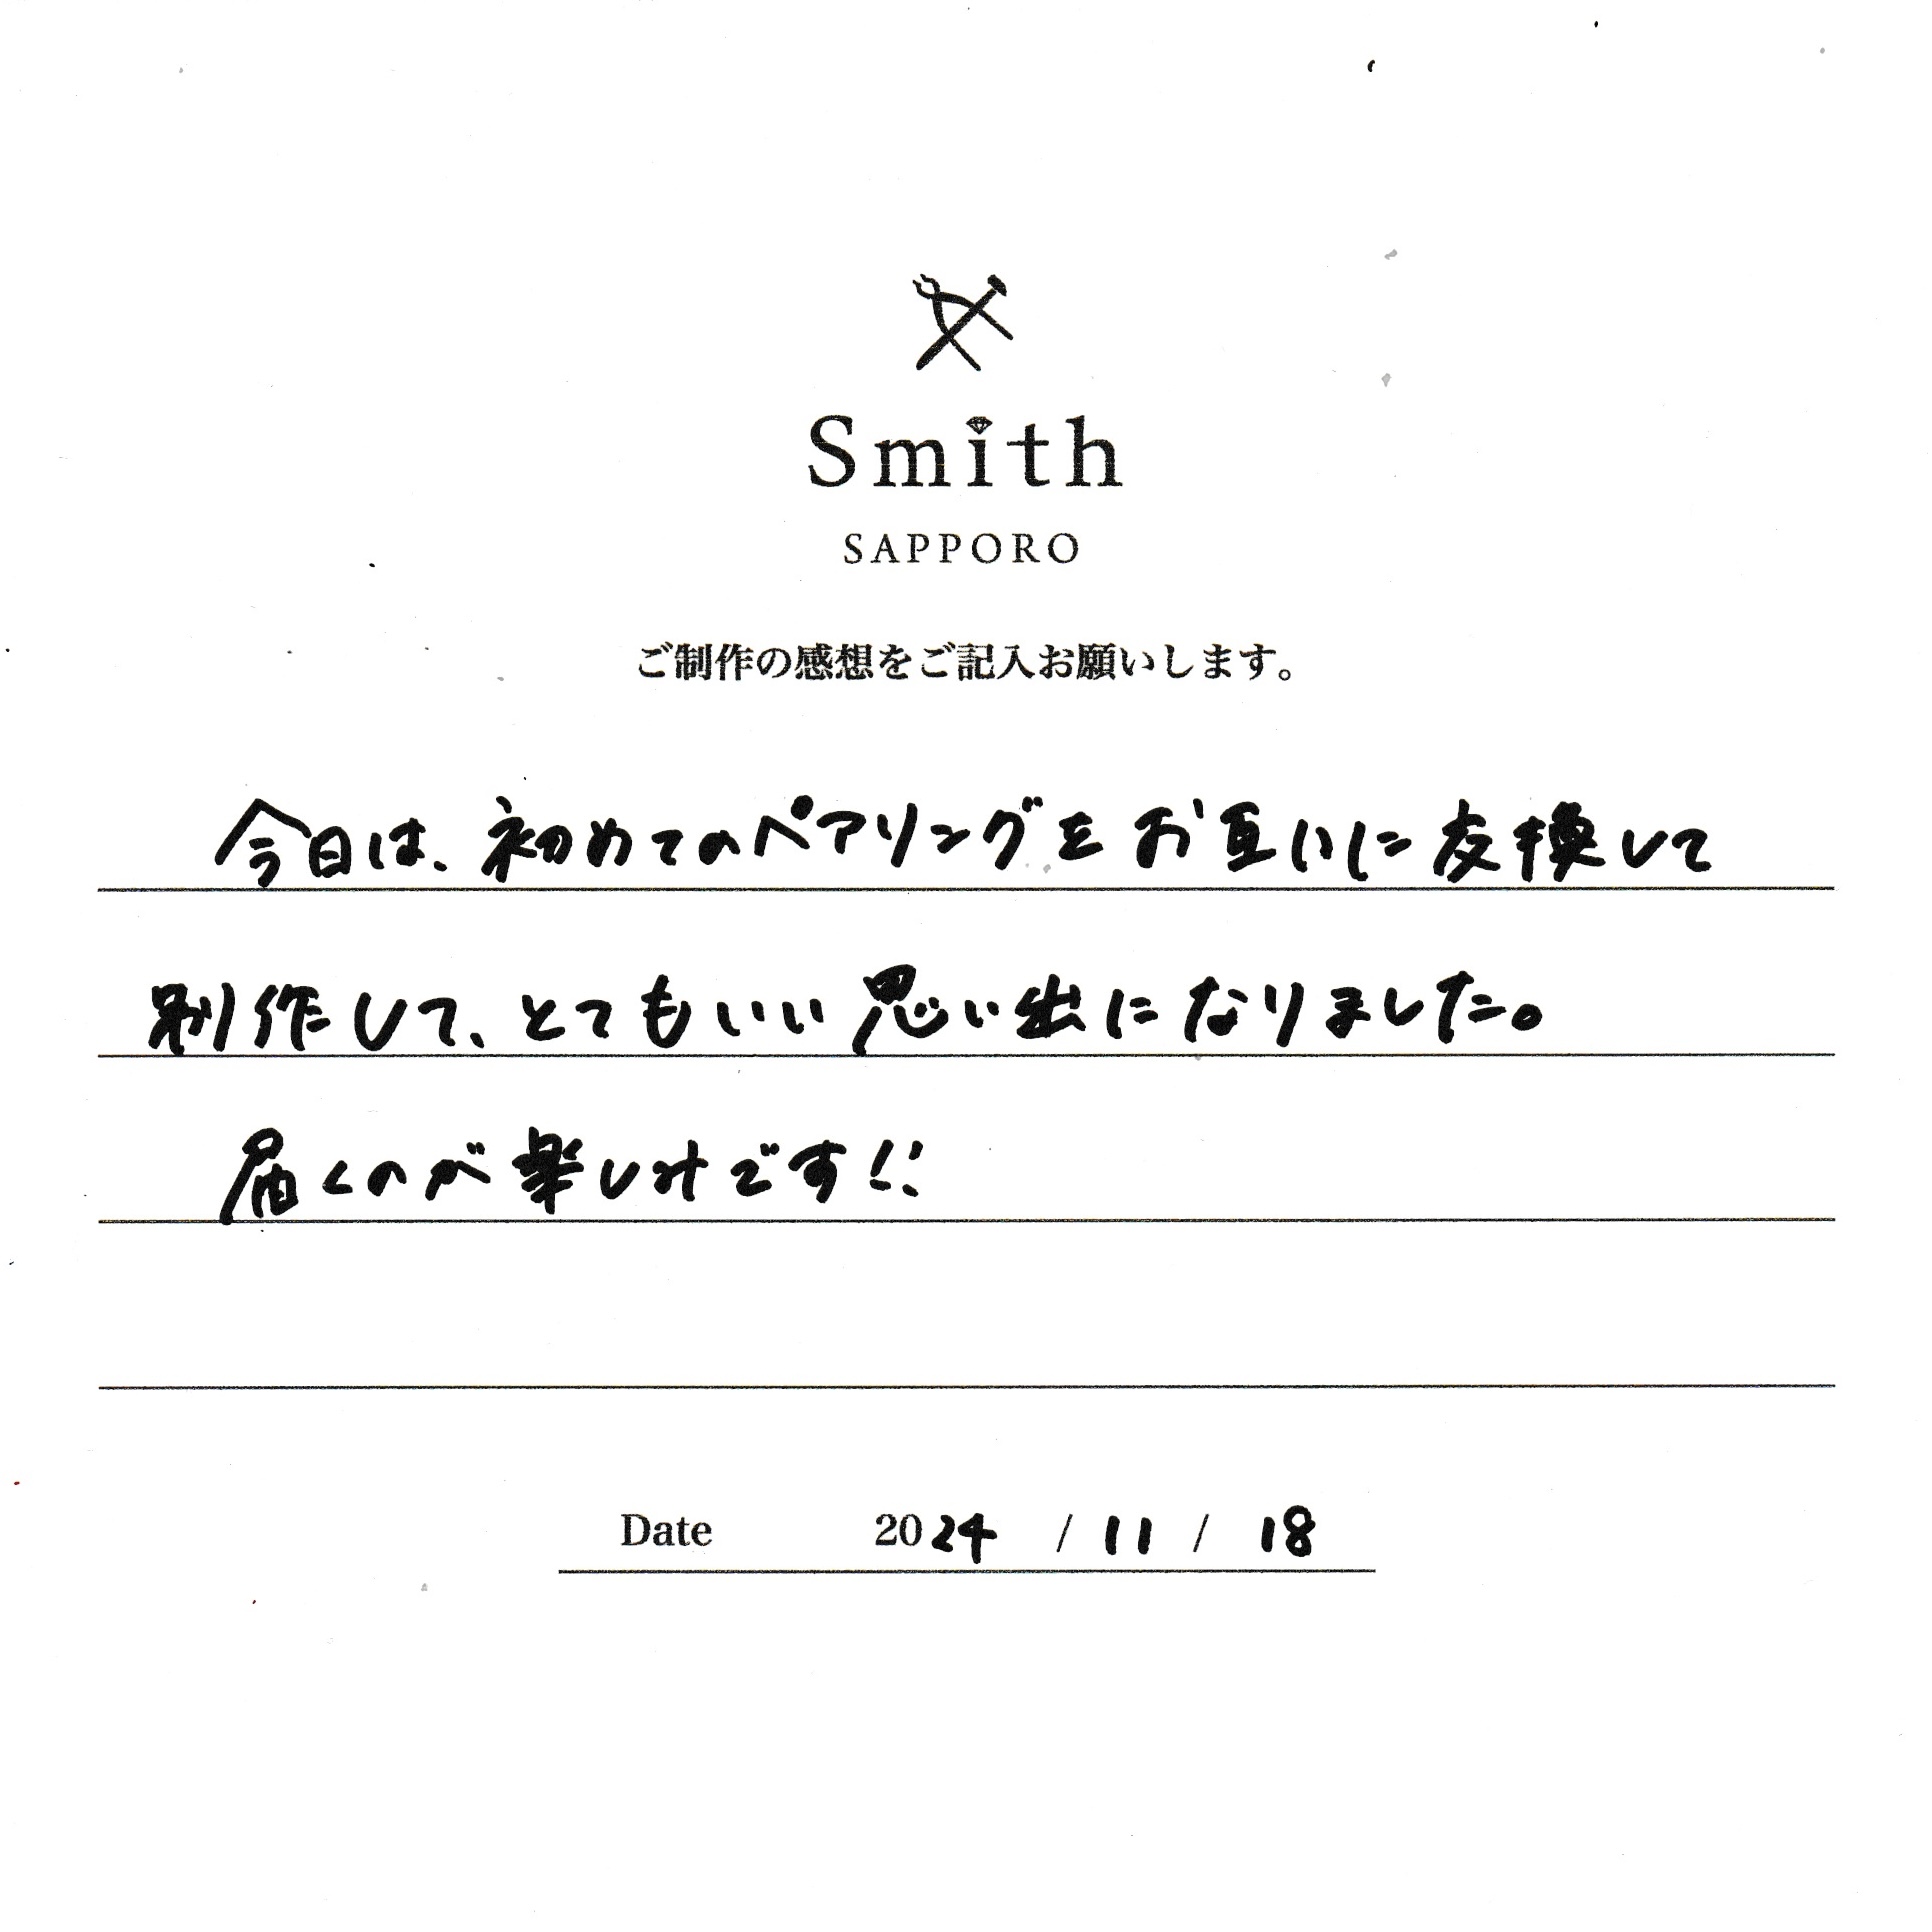 Smith
SAPPORO
ご制作の感想をご記入お願いします。
今日は、初めてのペアリングをお互いに交換して
制作して、とてもいい思い出になりました。
届くのが楽しみです!!
Date 2024 / 11 / 18